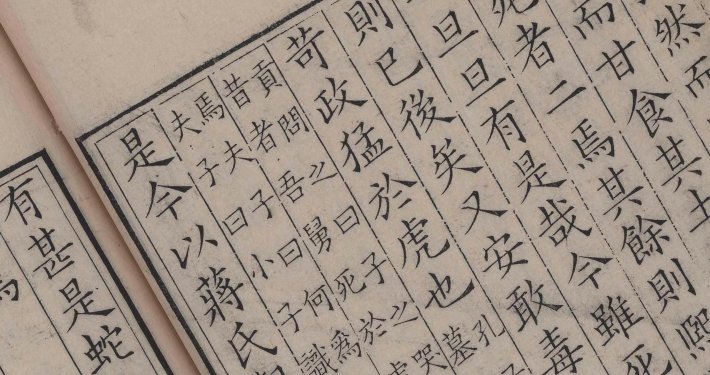 然而
而甘食其土
死者二焉其餘則熙
旦旦有是哉今雖死
則已後矣又安敢毒
苛政猛於虎也孔
墓
貢問之曰子之哭
昔者吾舅死於虎
焉夫子曰何爲
夫子曰小子識
是今以蔣氏
有甚是蛇